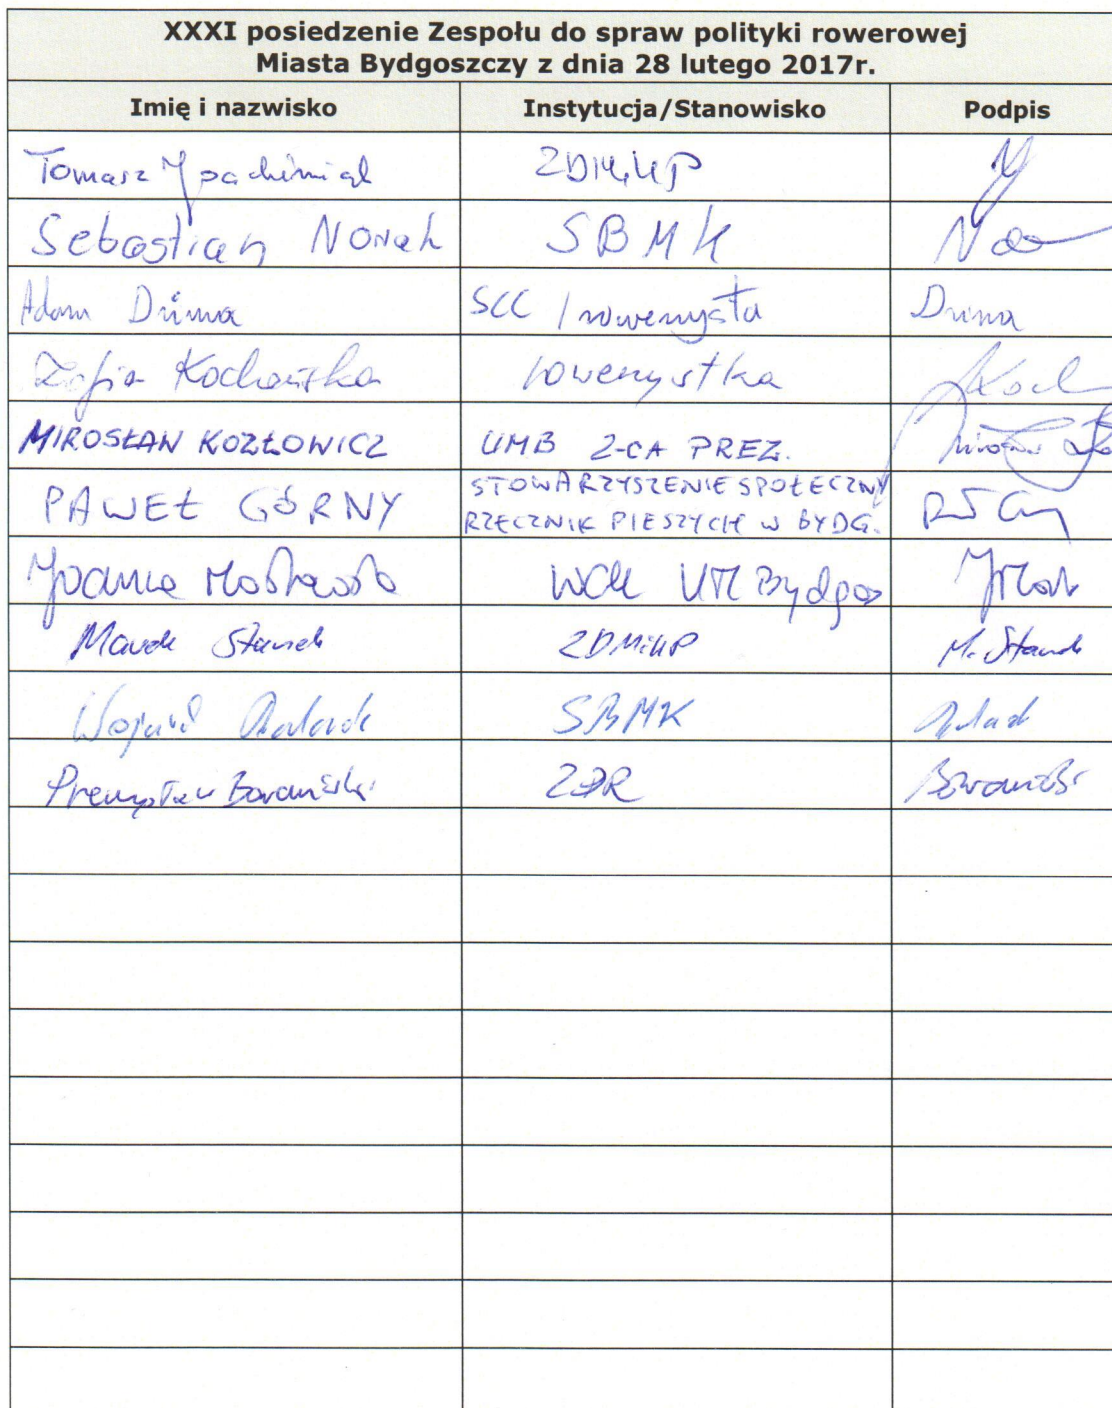 XXXI posiedzenie Zespołu do spraw polityki rowerowej
Miasta Bydgoszczy z dnia 28 lutego 2017r.
Imię i nazwisko Instytucja/Stanowisko Podpis
Tomasz ZDMiKP
Sebastian Nowak SBMK
Adam SCC / rowerzysta
Zofia Kochańska rowerzystka
MIROSŁAW KOZŁOWICZ UMB Z-CA PREZ.
PAWEŁ GÓRNY STOWARZYSZENIE SPOŁECZNY
RZECZNIK PIESZYCH W BYDG.
Joanna
Marek Stanek ZDMiKP M. Stanek
SBMK
Przemysław